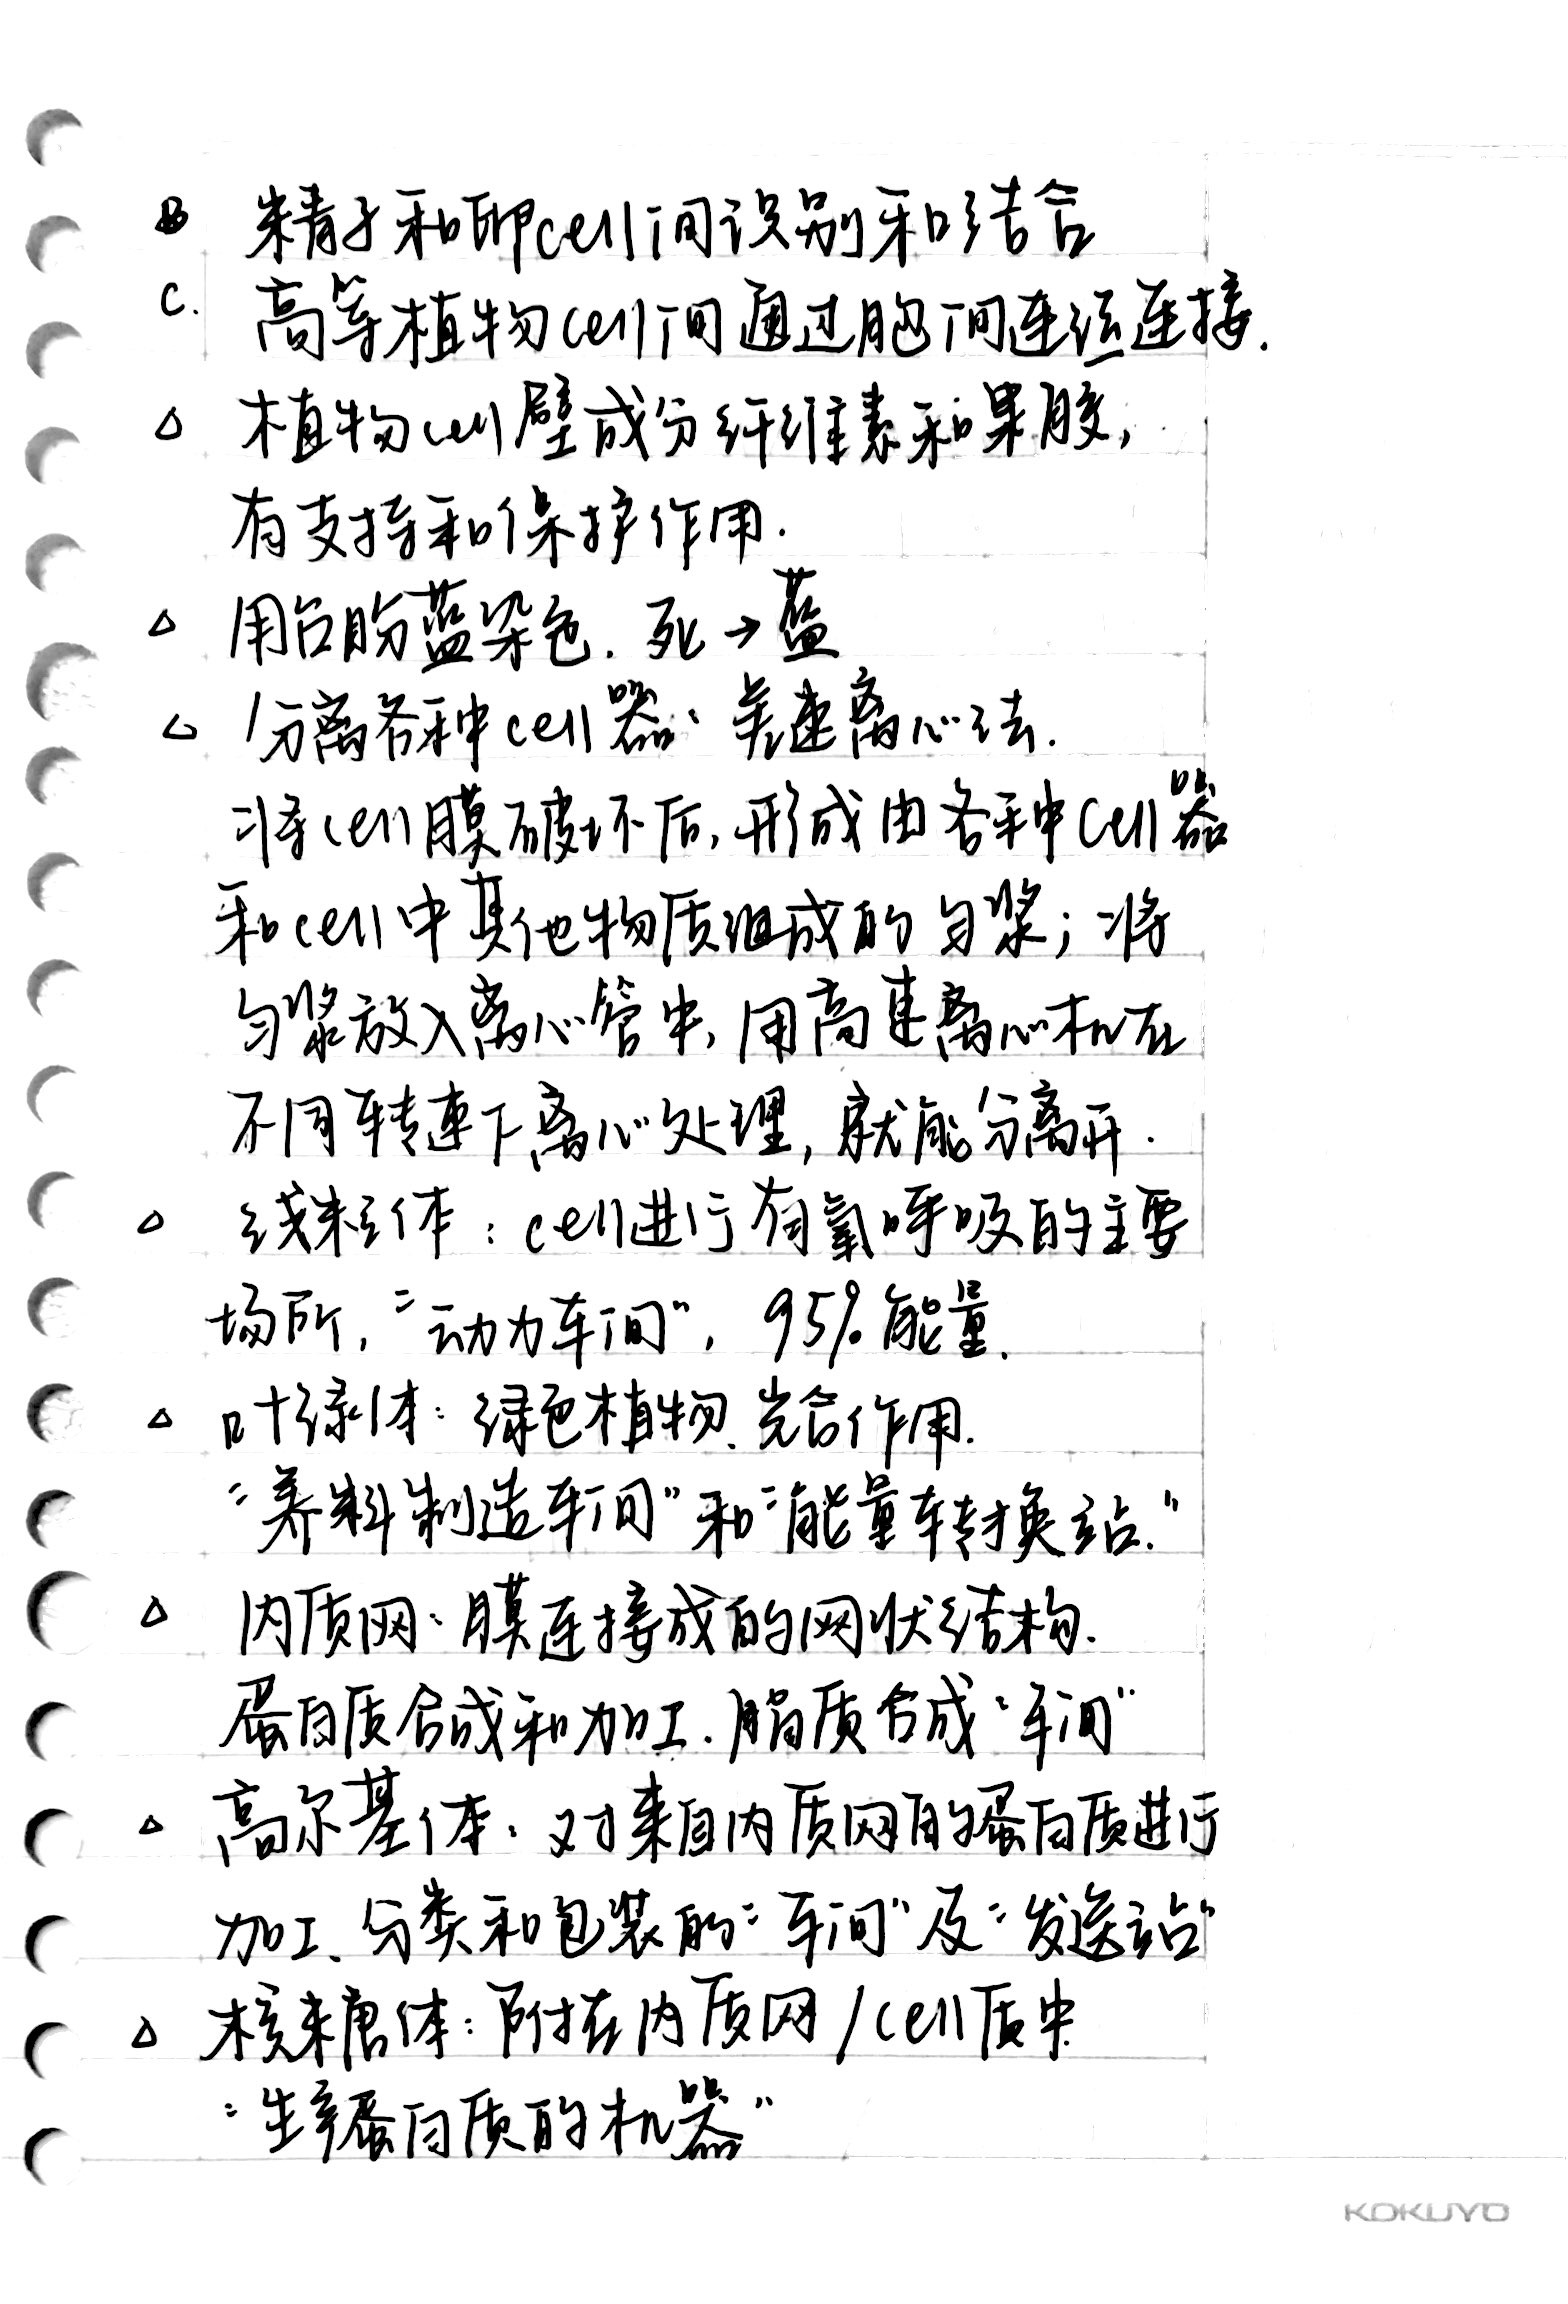 B 精子和卵cell间识别和结合
C. 高等植物cell间通过胞间连丝连接.
△ 植物cell壁成分纤维素和果胶,
有支持和保护作用.
△ 用台盼蓝染色. 死→蓝
△ 分离各种cell器: 差速离心法.
将cell膜破坏后, 形成由各种cell器
和cell中其他物质组成的匀浆; 将
匀浆放入离心管中, 用高速离心机在
不同转速下离心处理, 就能分离开.
△ 线粒体: cell进行有氧呼吸的主要
场所, “动力车间”, 95%能量.
△ 叶绿体: 绿色植物、光合作用.
“养料制造车间”和“能量转换站.”
△ 内质网: 膜连接成的网状结构.
蛋白质合成和加工、脂质合成“车间”
△ 高尔基体: 对来自内质网的蛋白质进行
加工、分类和包装的“车间”及“发送站”
△ 核糖体: 附在内质网/cell质中
“生产蛋白质的机器”
KOKUYO